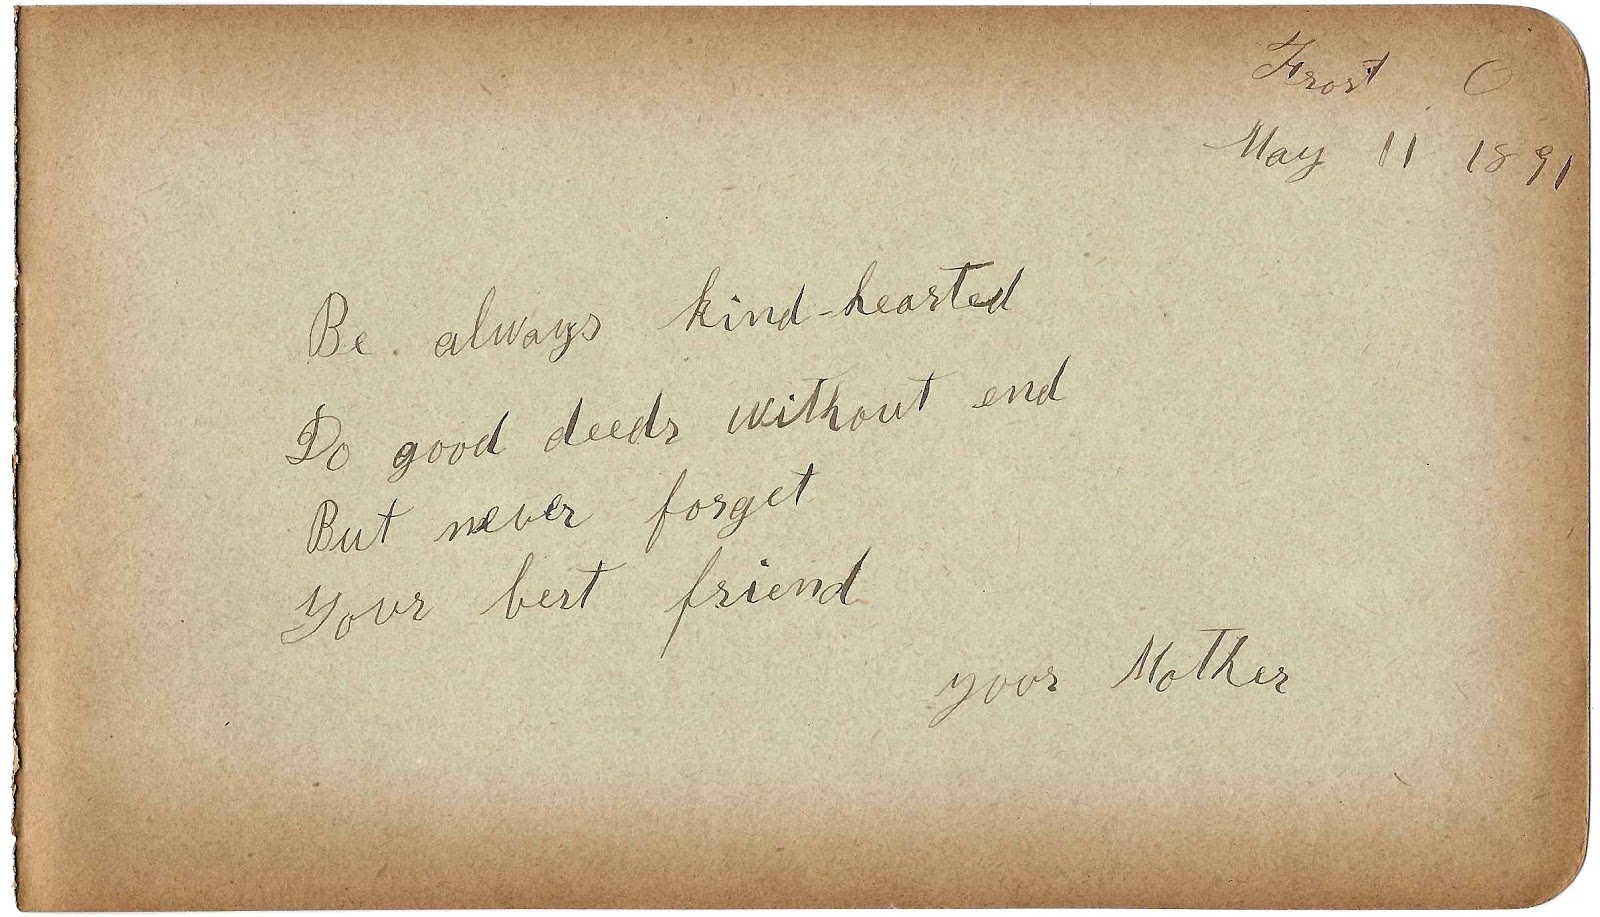 Frost O
May 11 1891
Be always kind-hearted
Do good deeds without end
But never forget
Your best friend
your Mother